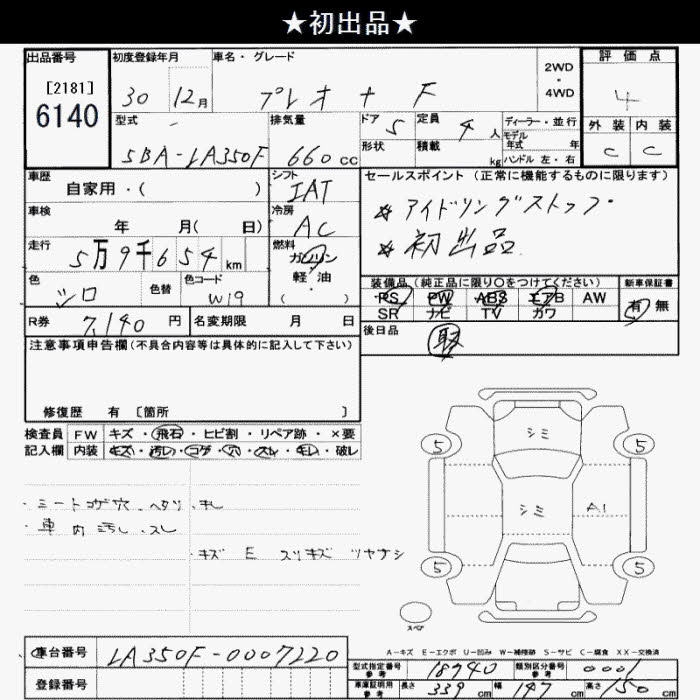 ★初出品★
出品番号 初度登録年月 車名・グレード 2WD・4WD 評価点
[2181]
6140
30 12月 プレオ+ F 4
型式 排気量 ドア 5 定員 4人 ディーラー・並行 外装 内装
5BA-LA350F 660cc 形状 積載 kg モデル年式 年 C C
ハンドル 左・右
車歴 シフト セールスポイント(正常に機能するものに限ります)
自家用・( ) IAT
車検 冷房 ※アイドリングストップ
年 月( 日) AC ※初出品
走行 5万9千654km 燃料 ガソリン
軽・油
( )
色 シロ 色替 色コード W19
装備品(純正品に限り○をつけてください) 新車保証書
PS PW ABS エアB AW 有・無
SR ナビ TV カワ
R券 7,140円 名変期限 月 日
後日品 取
注意事項申告欄(不具合内容等は具体的に記入して下さい)
修復歴 有 [箇所 ]
検査員 FW キズ・飛石・ヒビ割・リペア跡・×要
記入欄 内装 キズ・汚れ・コゲ・穴・スレ・キレ・破レ
・シートコゲ穴、ヘタリ、キレ
・車内汚レ、スレ
・キズ E スリキズ ツヤナシ
シミ
5 5
シミ A1
5 5
スペア
A-キズ E-エクボ U-凹み W-補修跡 S-サビ C-腐食 XX-交換済
車台番号 LA350F-0007220
登録番号
型式指定番号 参考 18940 類別区分番号 参考 0001
車庫証明用 参考 長さ 339cm 幅 147cm 高さ 150cm